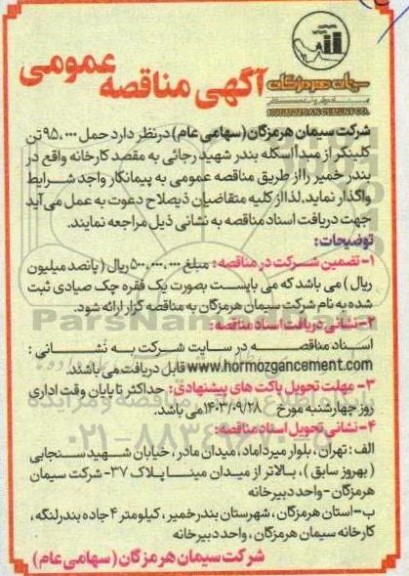 آگهی مناقصه عمومی
سیمان هرمزگان
HORMOZGAN CEMENT CO.
شرکت سیمان هرمزگان (سهامی عام) درنظر دارد حمل ۹۵.۰۰۰ تن
کلینکر از مبدأ اسکله بندر شهید رجائی به مقصد کارخانه واقع در
بندر خمیر را از طریق مناقصه عمومی به پیمانکار واجد شرایط
واگذار نماید. لذا از کلیه متقاضیان ذیصلاح دعوت به عمل می آید
جهت دریافت اسناد مناقصه به نشانی ذیل مراجعه نمایند.
توضیحات:
۱- تضمین شرکت در مناقصه: مبلغ ۵۰۰.۰۰۰.۰۰۰ ریال (پانصد میلیون
ریال) می باشد که می بایست بصورت یک فقره چک صیادی ثبت
شده به نام شرکت سیمان هرمزگان به مناقصه گزار ارائه شود.
۲- نشانی دریافت اسناد مناقصه:
اسناد مناقصه در سایت شرکت به نشانی:
www.hormozgancement.com قابل دریافت می باشند
۳- مهلت تحویل پاکت های پیشنهادی: حداکثر تا پایان وقت اداری
روز چهارشنبه مورخ ۱۴۰۳/۰۹/۲۸ می باشد.
۴- نشانی تحویل اسناد مناقصه:
الف: تهران، بلوار میرداماد، میدان مادر، خیابان شهید سنجابی
(بهروز سابق)، بالاتر از میدان مینا پلاک ۳۷- شرکت سیمان
هرمزگان - واحد دبیرخانه
ب- استان هرمزگان، شهرستان بندرخمیر، کیلومتر ۴ جاده بندرلنگه،
کارخانه سیمان هرمزگان، واحد دبیرخانه
شرکت سیمان هرمزگان (سهامی عام)
ParsNamadData
پایگاه اطلاع رسانی مناقصه و مزایده